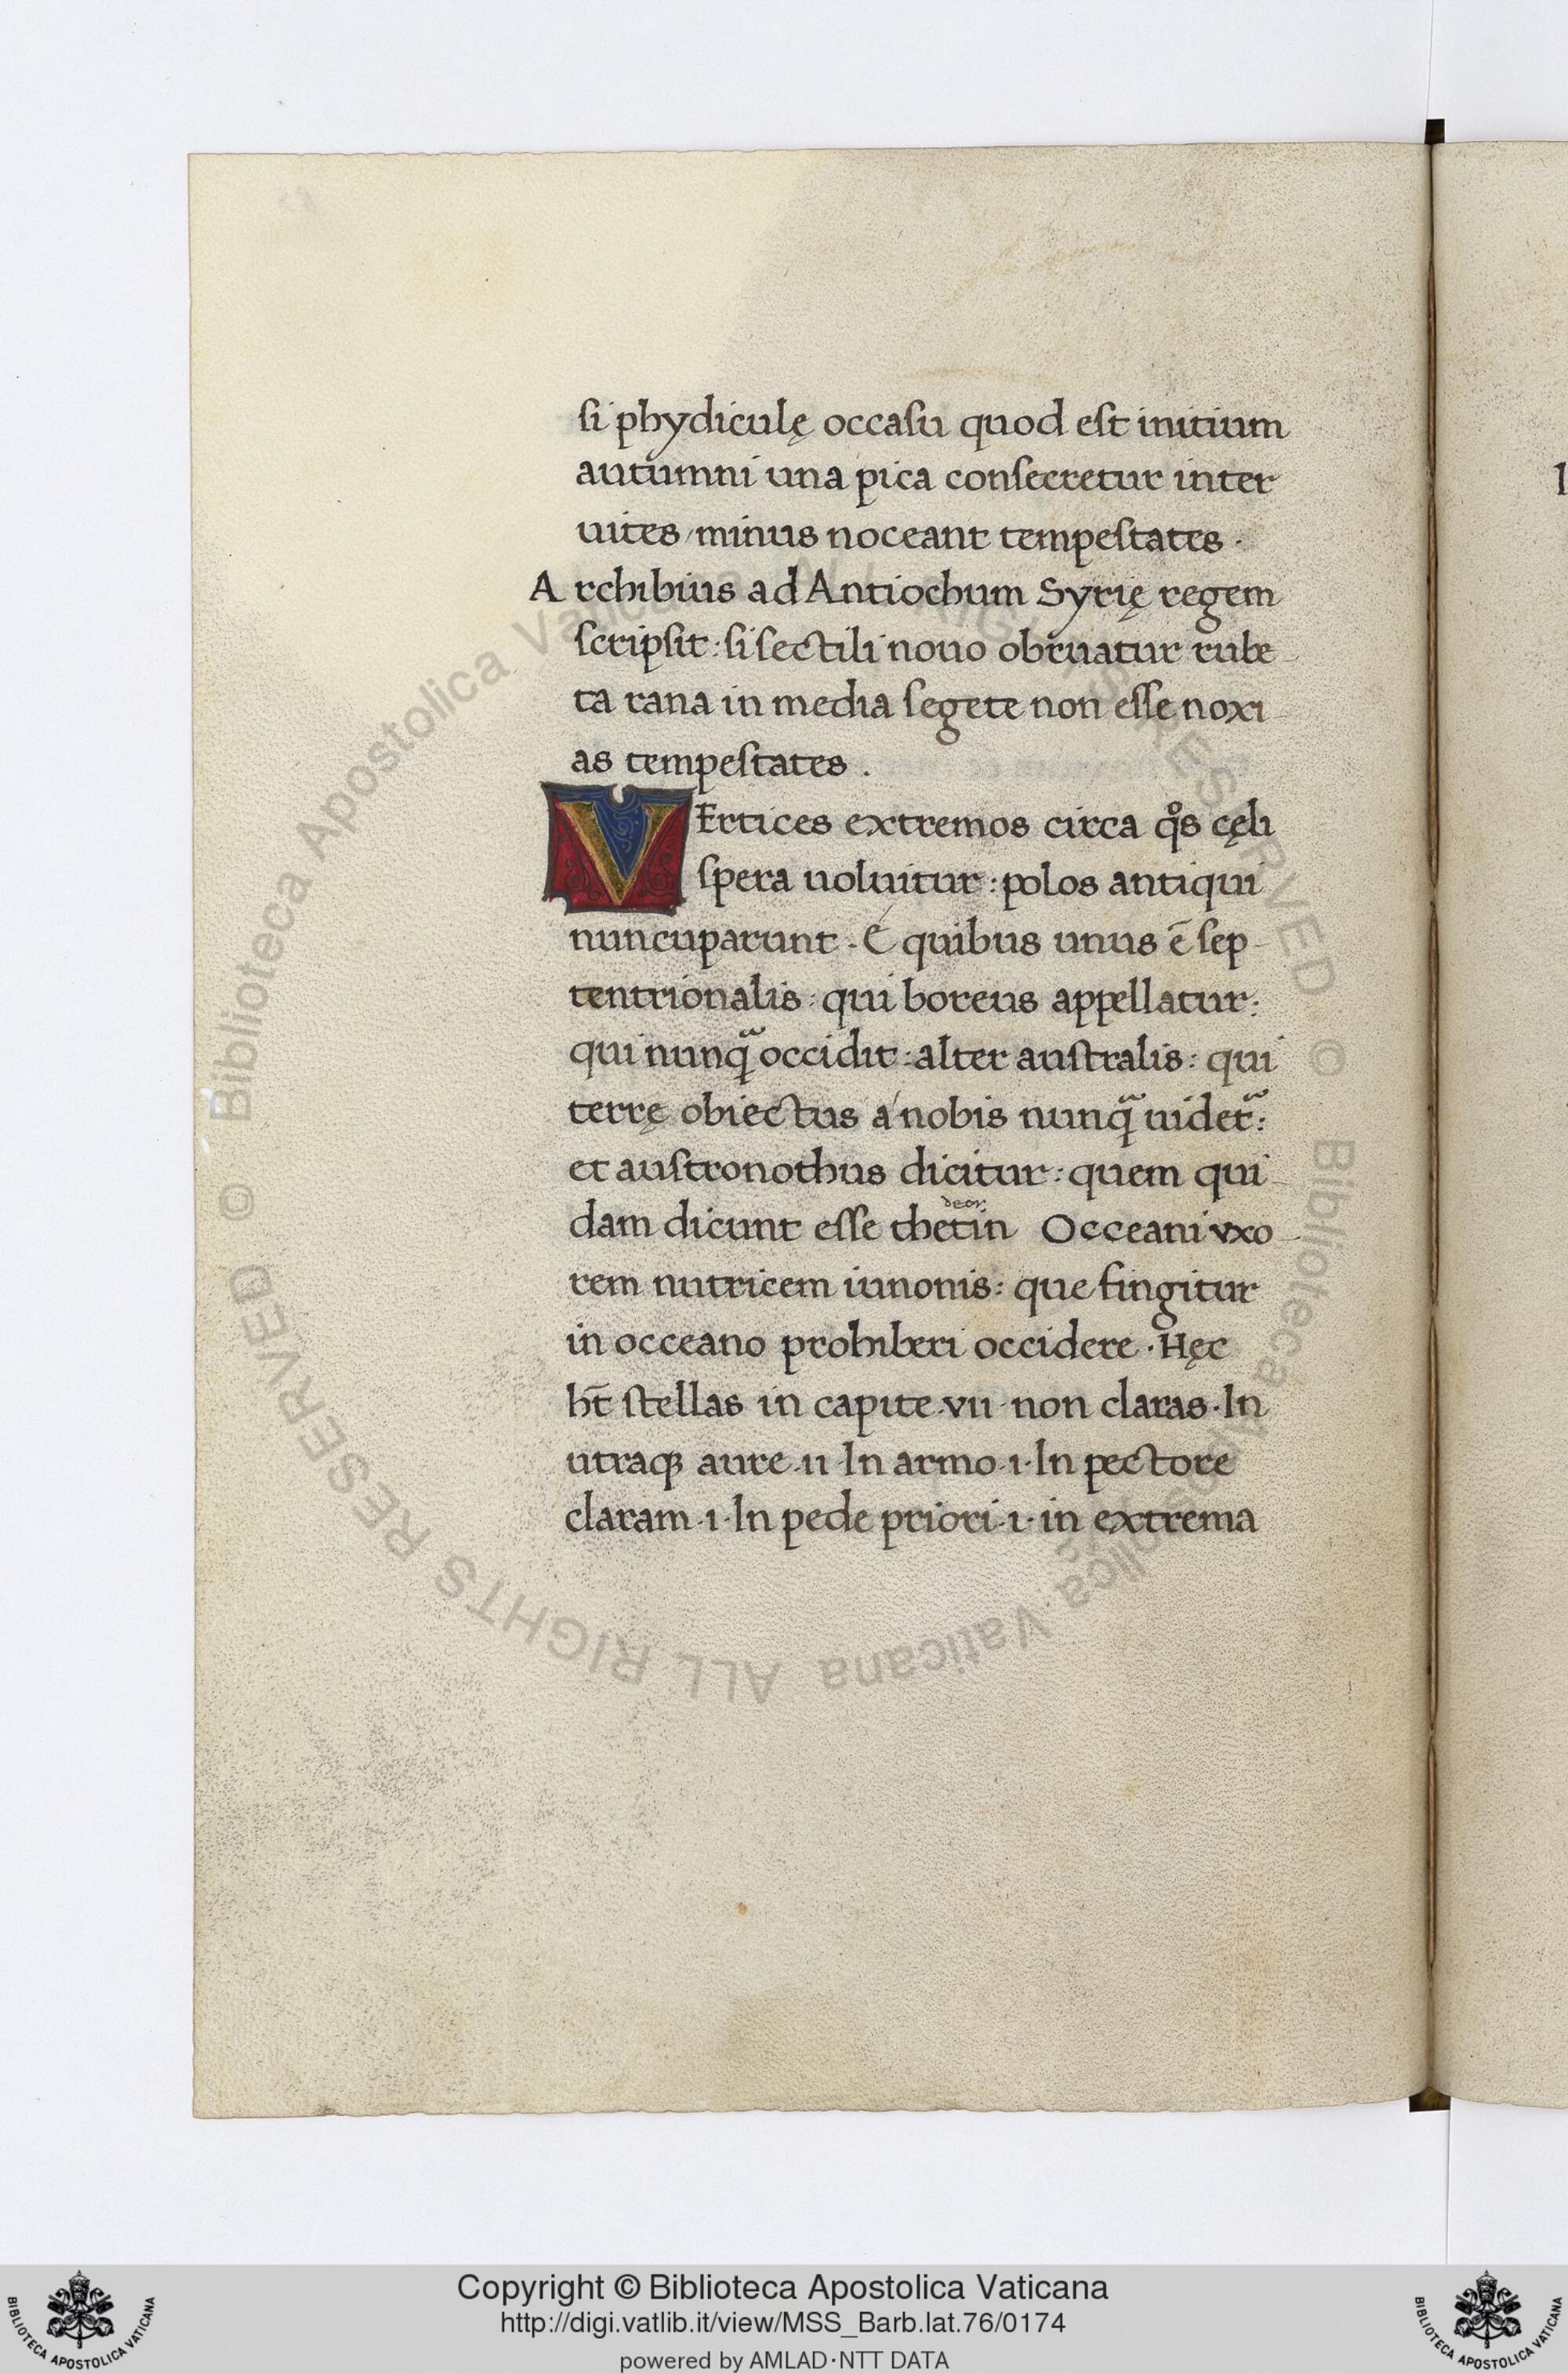 si phydiculę occasu quod est initium
autumni una pica consecretur inter
uites / minus noceant tempestates .
A rchibius ad Antiochum Syrię regem
scripsit : si sectili nouo obruatur rube-
ta rana in media segete non esse noxi-
as tempestates .
VErtices extremos circa qͦs cęli
spera uoluitur : polos antiqui
nuncuparunt . E quibus unus ē sep-
tentrionalis : qui boreus appellatur :
qui nunqᷓ occidit : alter australis : qui
terrę obiectus a nobis nunqᷓ uidetᷓ :
et austronothus dicitur : quem qui-
deor.
dam dicunt esse thetin Occeani vxo-
rem nutricem iunonis : que fingitur
in occeano prohiberi occidere . Hęc
ht̄ stellas in capite .vii. non claras . In
utraqꝫ aure .ii. In armo .i. In pectore
claram .i. In pede priori .i. in extrema
© Biblioteca Apostolica Vaticana ALL RIGHTS RESERVED © Biblioteca Apostolica Vaticana ALL RIGHTS RESERVED
Copyright © Biblioteca Apostolica Vaticana
http://digi.vatlib.it/view/MSS_Barb.lat.76/0174
powered by AMLAD·NTT DATA
BIBLIOTECA APOSTOLICA VATICANA
BIBLIOTECA APOSTOLICA VATICANA